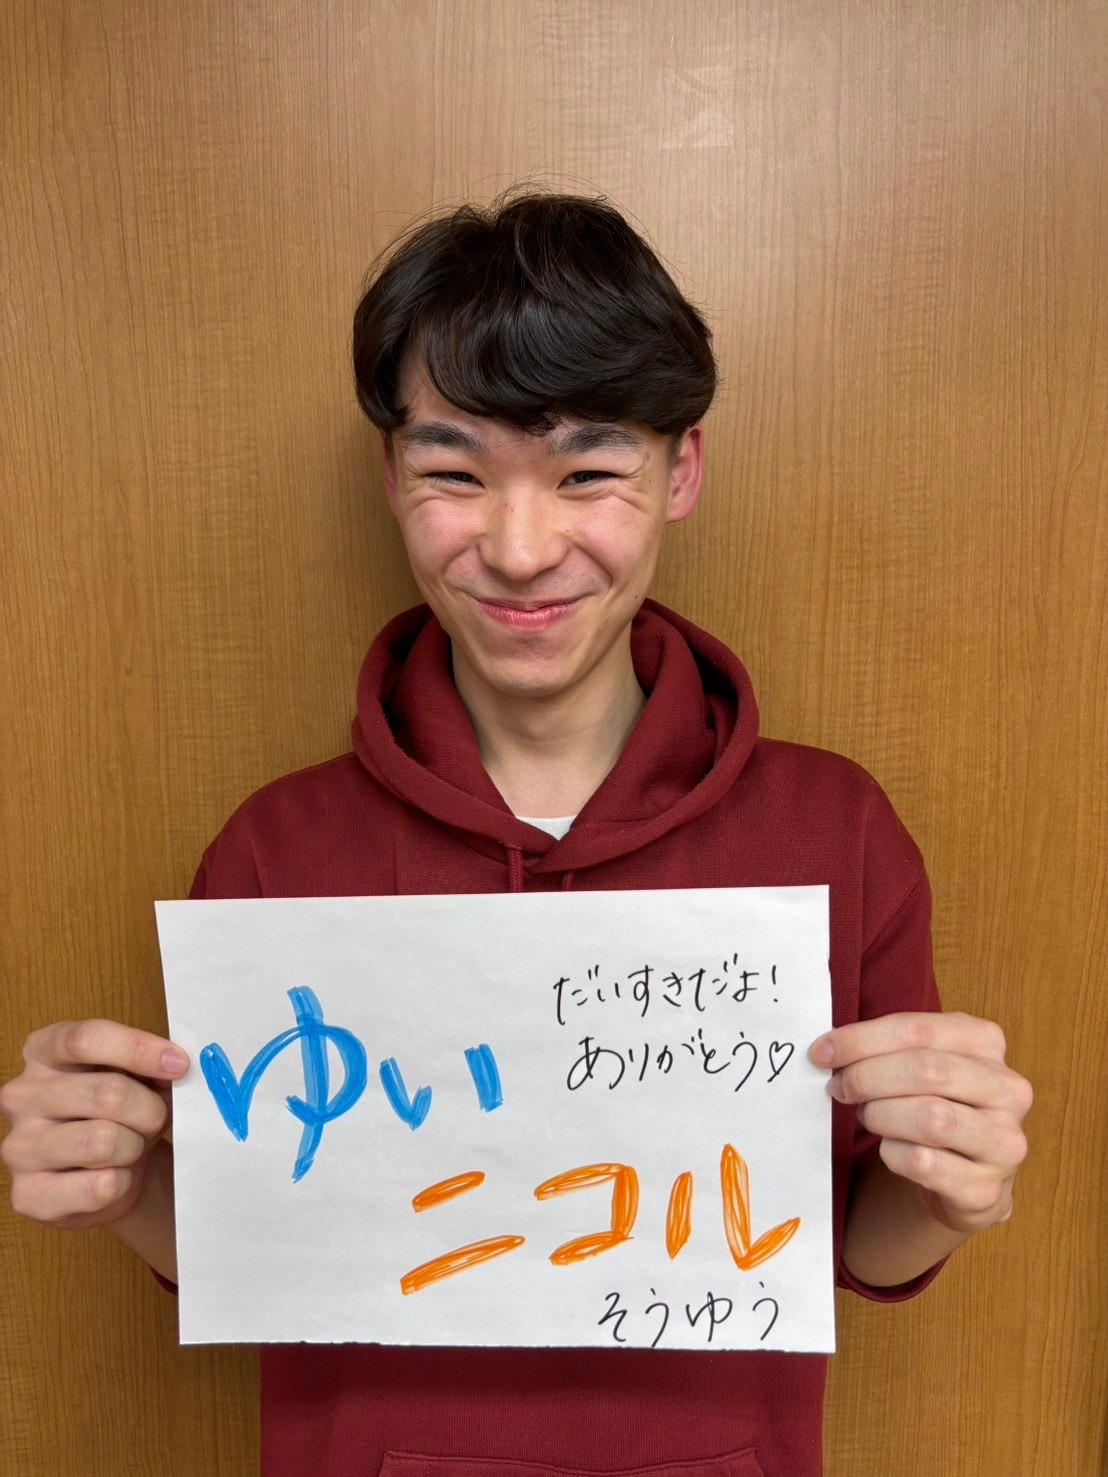 だいすきだよ！
ありがとう♡
ゆい
ニコル
そうゆう